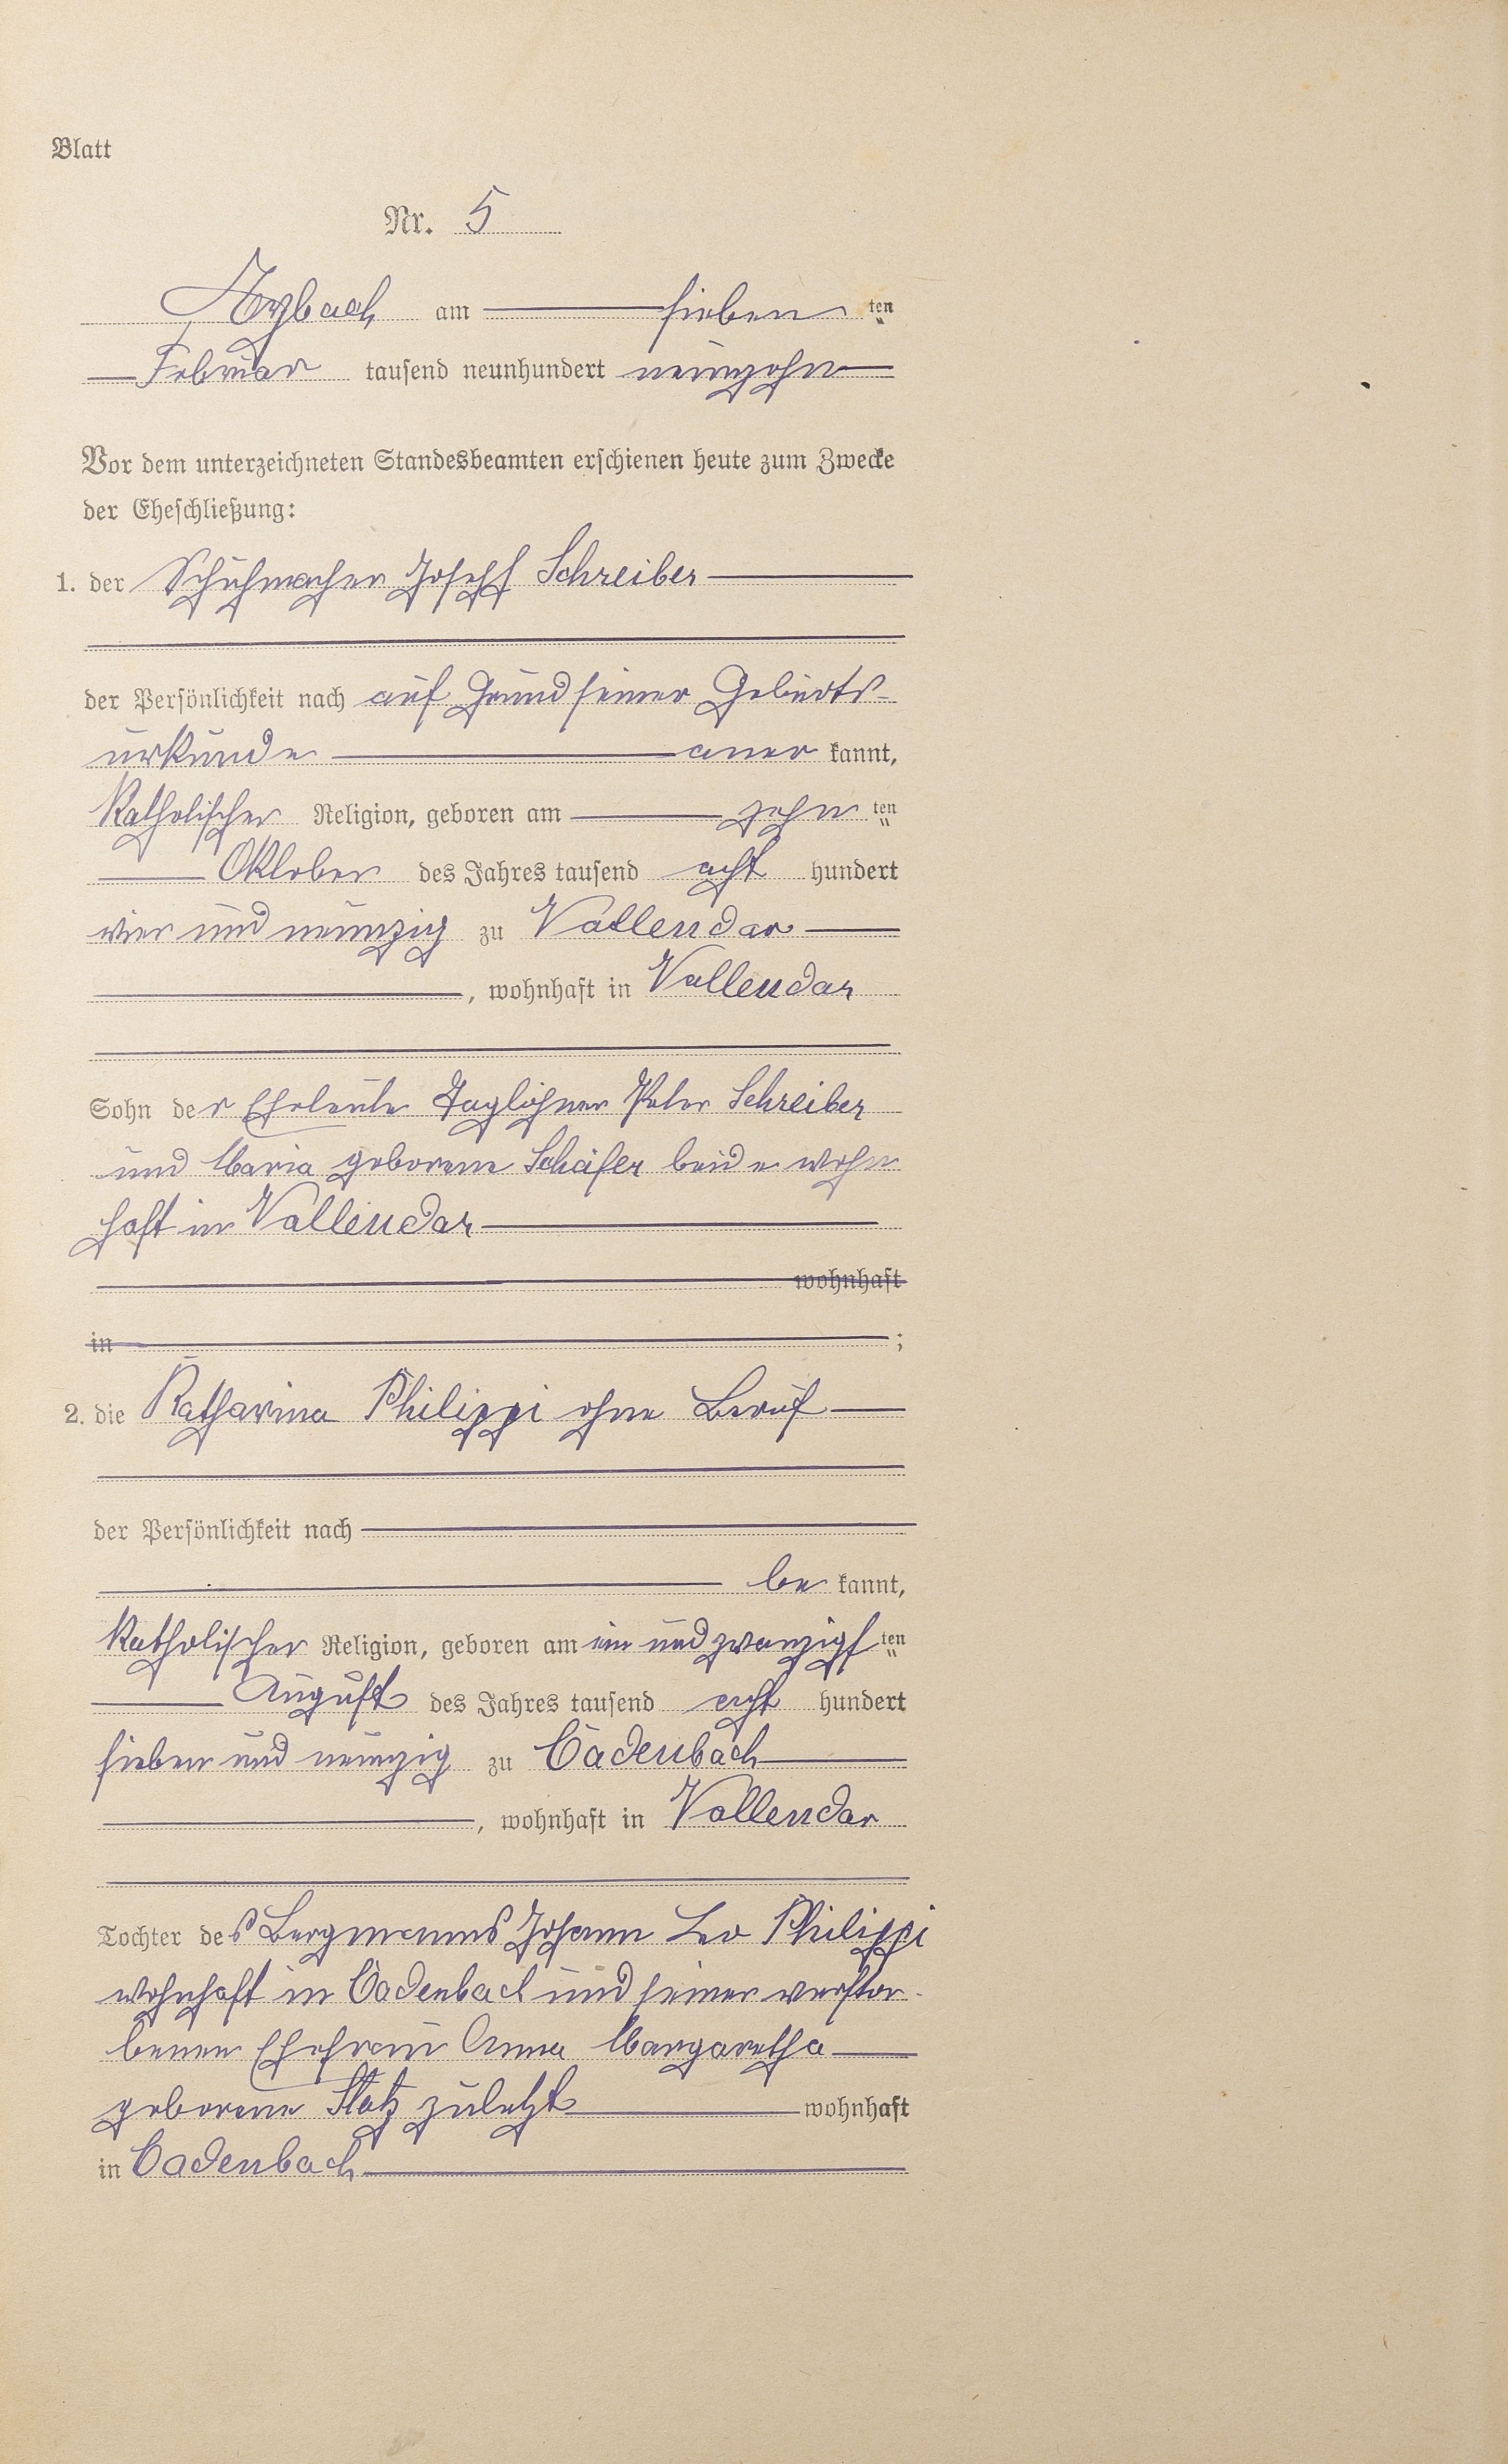 Blatt
Nr. 5
Arzbach am sieben ten
Februar tausend neunhundert neunzehn
Vor dem unterzeichneten Standesbeamten erschienen heute zum Zwecke
der Eheschließung:
1. der Schuhmacher Joseph Schreiber
der Persönlichkeit nach auf Grund seiner Geburts-
urkunde aner kannt,
Katholischer Religion, geboren am zehn ten
Oktober des Jahres tausend acht hundert
vier und neunzig zu Vallendar
, wohnhaft in Vallendar
Sohn der Eheleute Taglöhner Peter Schreiber
und Maria geborene Schäfer beide wohn
haft in Vallendar
wohnhaft
in ;
2. die Katharina Philippi ohne Beruf
der Persönlichkeit nach
be kannt,
Katholischer Religion, geboren am ein und zwanzigs ten
August des Jahres tausend acht hundert
sieben und neunzig zu Cadenbach
, wohnhaft in Vallendar
Tochter des Bergmanns Johann Leo Philippi
wohnhaft in Cadenbach und seiner verstor-
benen Ehefrau Anna Margaretha
geborene Statz zuletzt wohnhaft
in Cadenbach